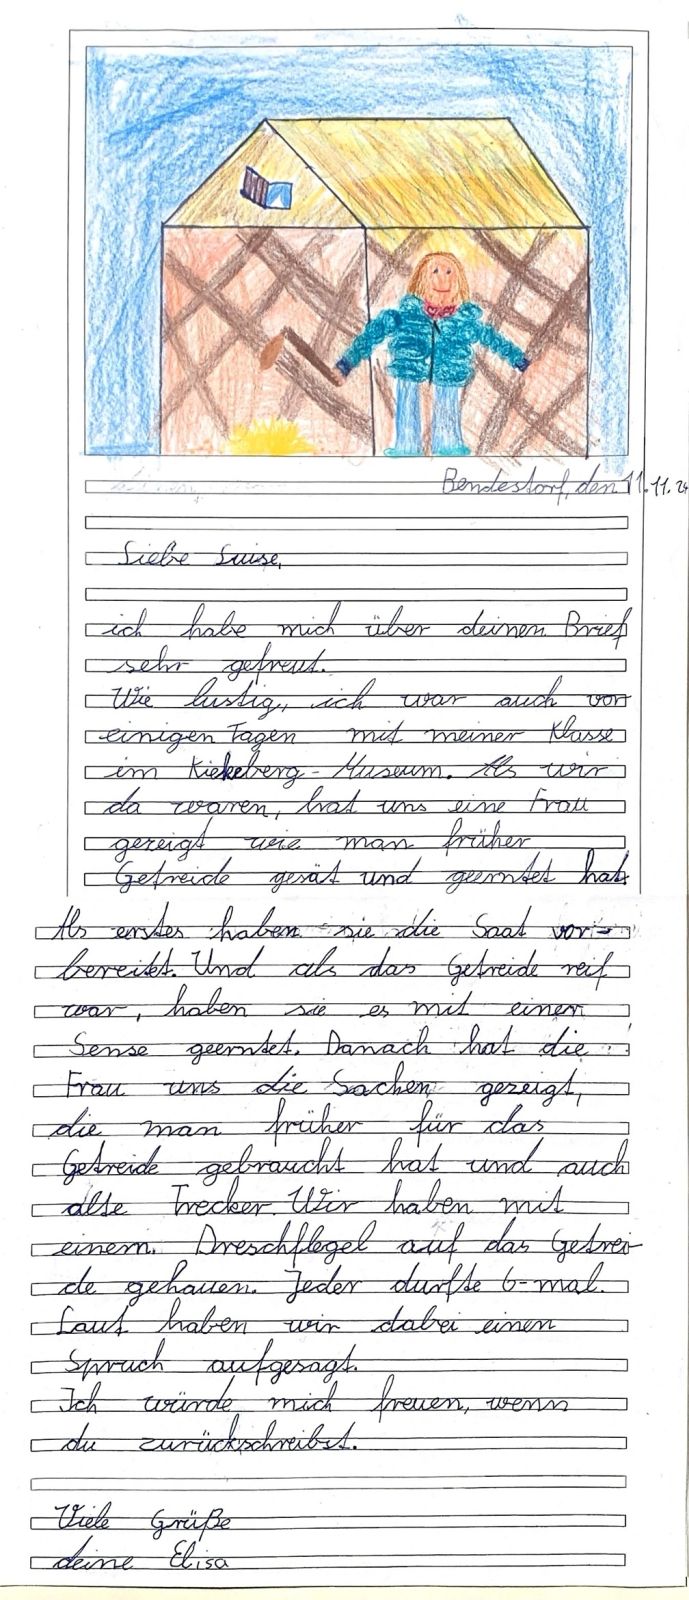 Bendestorf, den 11.11.24
Liebe Luise,
ich habe mich über deinen Brief
sehr gefreut.
Wie lustig, ich war auch vor
einigen Tagen mit meiner Klasse
im Kiekeberg-Museum. Als wir
da waren, hat uns eine Frau
gezeigt wie man früher
Getreide gesät und geerntet hat.
Als erstes haben sie die Saat vor-
bereitet. Und als das Getreide reif
war, haben sie es mit einer
Sense geerntet. Danach hat die
Frau uns die Sachen gezeigt,
die man früher für das
Getreide gebraucht hat und auch
alte Trecker. Wir haben mit
einem Dreschflegel auf das Getrei-
de gehauen. Jeder durfte 6-mal.
Laut haben wir dabei einen
Spruch aufgesagt.
Ich würde mich freuen, wenn
du zurückschreibst.
Viele Grüße
deine Elisa